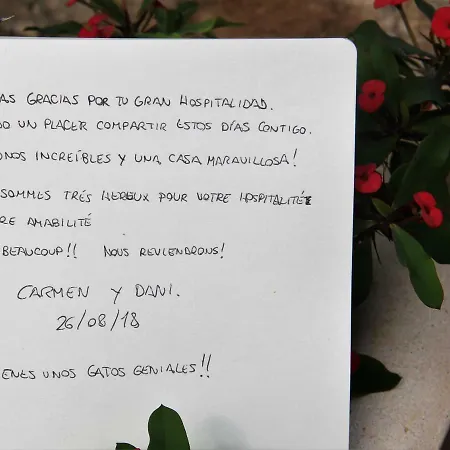 AS GRACIAS POR TU GRAN HOSPITALIDAD.
DO UN PLACER COMPARTIR ESTOS DÍAS CONTIGO.
NOS INCREÍBLES Y UNA CASA MARAVILLOSA!
SOMMES TRÉS HEREUX POUR VOTRE HOSPITALITÉ
RE AMABILITÉ
BEAUCOUP!! NOUS REVIENDRONS!
CARMEN Y DANI.
26/08/18
ENES UNOS GATOS GENIALES!!